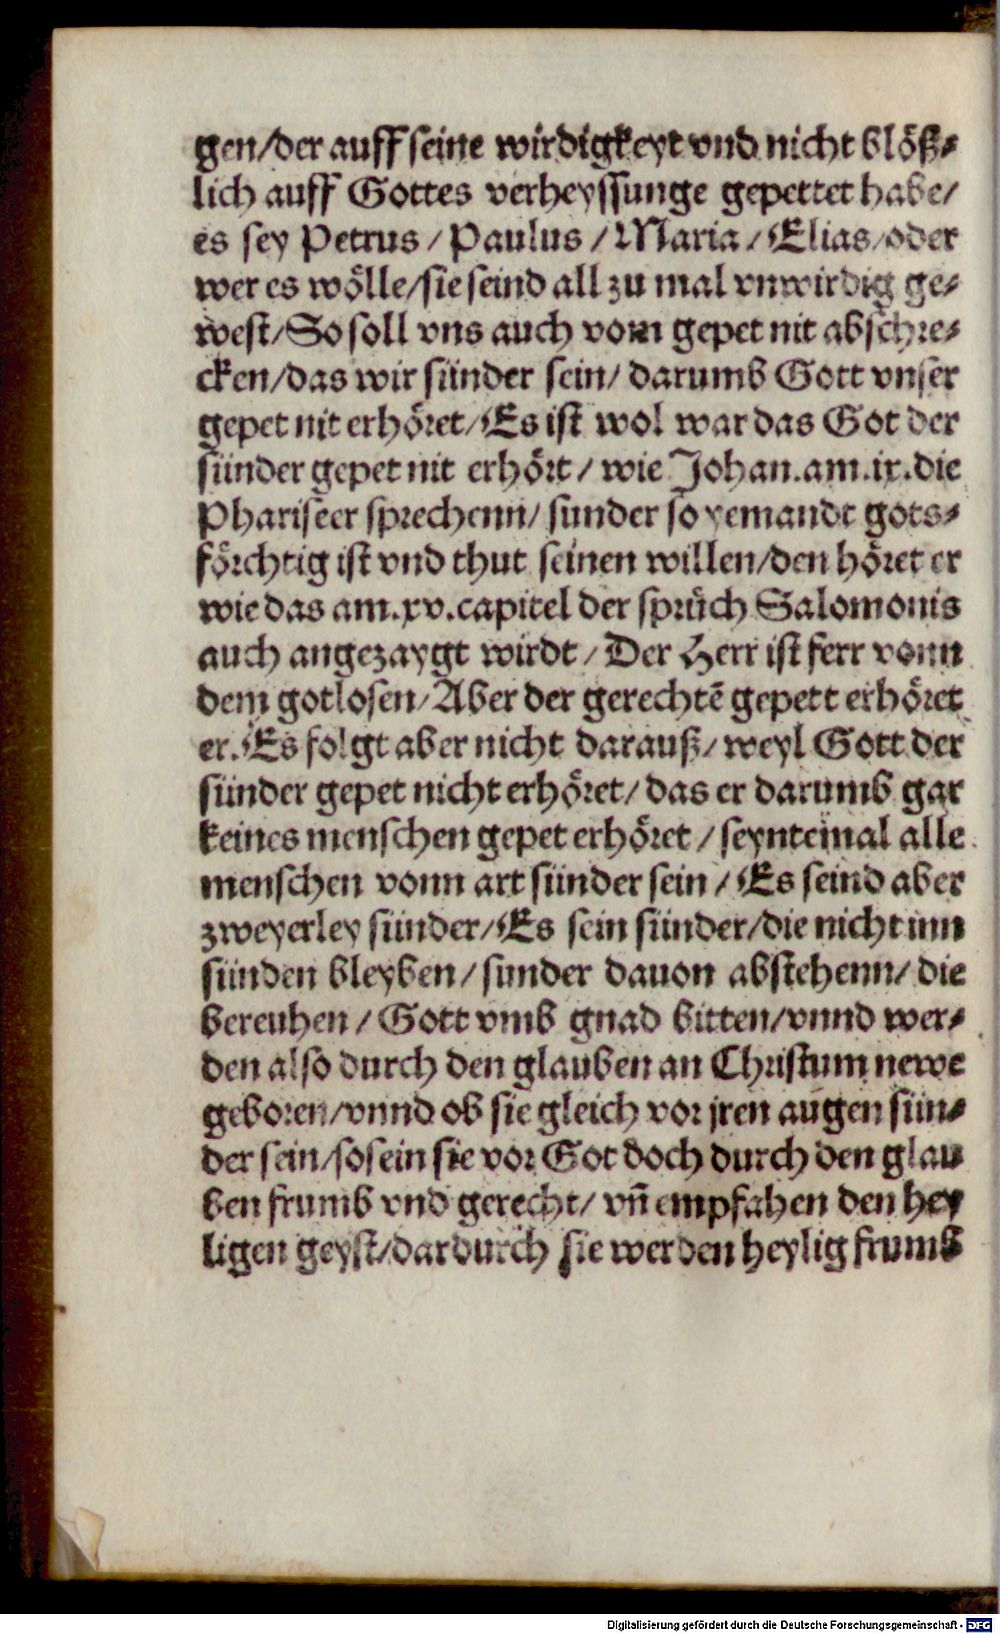 gen/der auff seine wirdigkeyt vnd nicht blöß⸗
lich auff Gottes verheyssunge gepettet habe/
es sey Petrus / Paulus / Maria / Elias/oder
wer es wölle/sie seind all zu mal vnwirdig ge⸗
west/So soll vns auch vom gepet nit abschre⸗
cken/das wir sünder sein/ darumb Gott vnser
gepet nit erhöret/Es ist wol war das Got der
sünder gepet nit erhört / wie Johan.am.ix.die
Phariseer sprechenn/ sunder so yemandt gots⸗
förchtig ist vnd thut seinen willen/den höret er
wie das am.xv.capitel der sprüch Salomonis
auch angezaygt wirdt / Der Herr ist ferr vonn
dem gotlosen/Aber der gerechtē gepett erhöret
er.Es folgt aber nicht darauß/ weyl Gott der
sünder gepet nicht erhöret/ das er darumb gar
keines menschen gepet erhöret / seyntemal alle
menschen vonn art sünder sein / Es seind aber
zweyerley sünder/Es sein sünder/die nicht inn
sünden bleyben / sunder dauon abstehenn/ die
bereuhen / Gott vmb gnad bitten/vnnd wer⸗
den also durch den glauben an Christum newe
geboren/vnnd ob sie gleich vor jren augen sün⸗
der sein/so sein sie vor Got doch durch den glau
ben frumb vnd gerecht/ vn̄ empfahen den hey
ligen geyst/dardurch sie werden heylig frumb
Digitalisierung gefördert durch die Deutsche Forschungsgemeinschaft - DFG